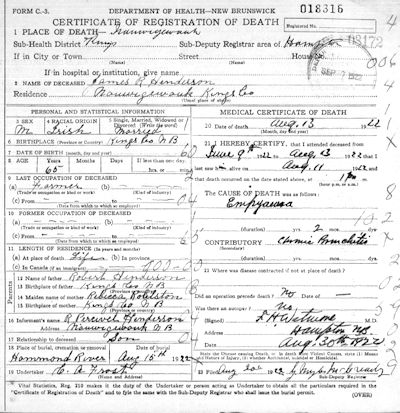 FORM C-3. DEPARTMENT OF HEALTH—NEW BRUNSWICK 018316
CERTIFICATE OF REGISTRATION OF DEATH
1 PLACE OF DEATH— Nauwigewauk Registered No.
Sub-Health District Kings Sub-Deputy Registrar area of Hampton
If in City or Town Street House No. 006
SEP 7 1922
If in hospital or institution, give name
2 NAME OF DECEASED James R Henderson
Residence Nauwigewauk Kings Co
(Usual place of abode)
PERSONAL AND STATISTICAL INFORMATION
3 SEX 4 RACIAL ORIGIN 5 Single, Married, Widowed or Divorced (Write the word)
M. Irish Married
6 BIRTHPLACE (Province or Country) Kings Co N B
7 DATE OF BIRTH
8 AGE Years Months Days If less than one day
65 hrs. min.
9 LAST OCCUPATION OF DECEASED
(a) Farmer (b)
(Trade or occupation or kind of work) (Kind of industry)
(c) From to
(Date from which to which)
10 FORMER OCCUPATION OF DECEASED
(a) (b)
(Trade or occupation or kind of work) (Kind of industry)
(c) From to
11 LENGTH OF RESIDENCE (In years and months)
(a) At place of death Life
(c) In Canada (if an immigrant)
Parents
12 Name of father Robert Henderson
13 Birthplace of father Kings Co N B
14 Maiden name of mother Rebecca
15 Birthplace of mother Kings Co N B
16 Informant's name R Percival Henderson
Address Nauwigewauk N B
17 Relationship to deceased Son
18 Place of burial, cremation or removal Date of burial
Hammond River Aug 15th 1922
19 Undertaker C. A. Frost
MEDICAL CERTIFICATE OF DEATH
20 Date of death Aug. 13 1922
(Month, day and year)
21 I HEREBY CERTIFY, that I attended deceased from
June 9th 1922 to Aug 13 1922 that I
last saw alive on Aug 11 1922 and that
death occurred on the date stated above, at m.
The CAUSE OF DEATH was as follows:
Empyaema
(duration) yrs. 2 mos. dys.
CONTRIBUTORY Chronic Bronchitis
(duration) yrs. mos. dys.
22 Where was disease contracted if not at place of death?
Did an operation precede death? No
Was there an autopsy? No
(Signed) M.D.
Address Hampton NB.
Date Aug. 30th 1922
State the Disease Causing Death, or in death from Violent Causes, state (1) Means
23 Filed Aug 30 1922
Sub-Deputy Registrar
Vital Statistics, Reg. 210 makes it the duty of the Undertaker or person acting as Undertaker to obtain all the particulars required in
the "Certificate of Registration of Death" and to file the same with the Sub-Deputy Registrar who shall issue the burial permit.
(OVER)